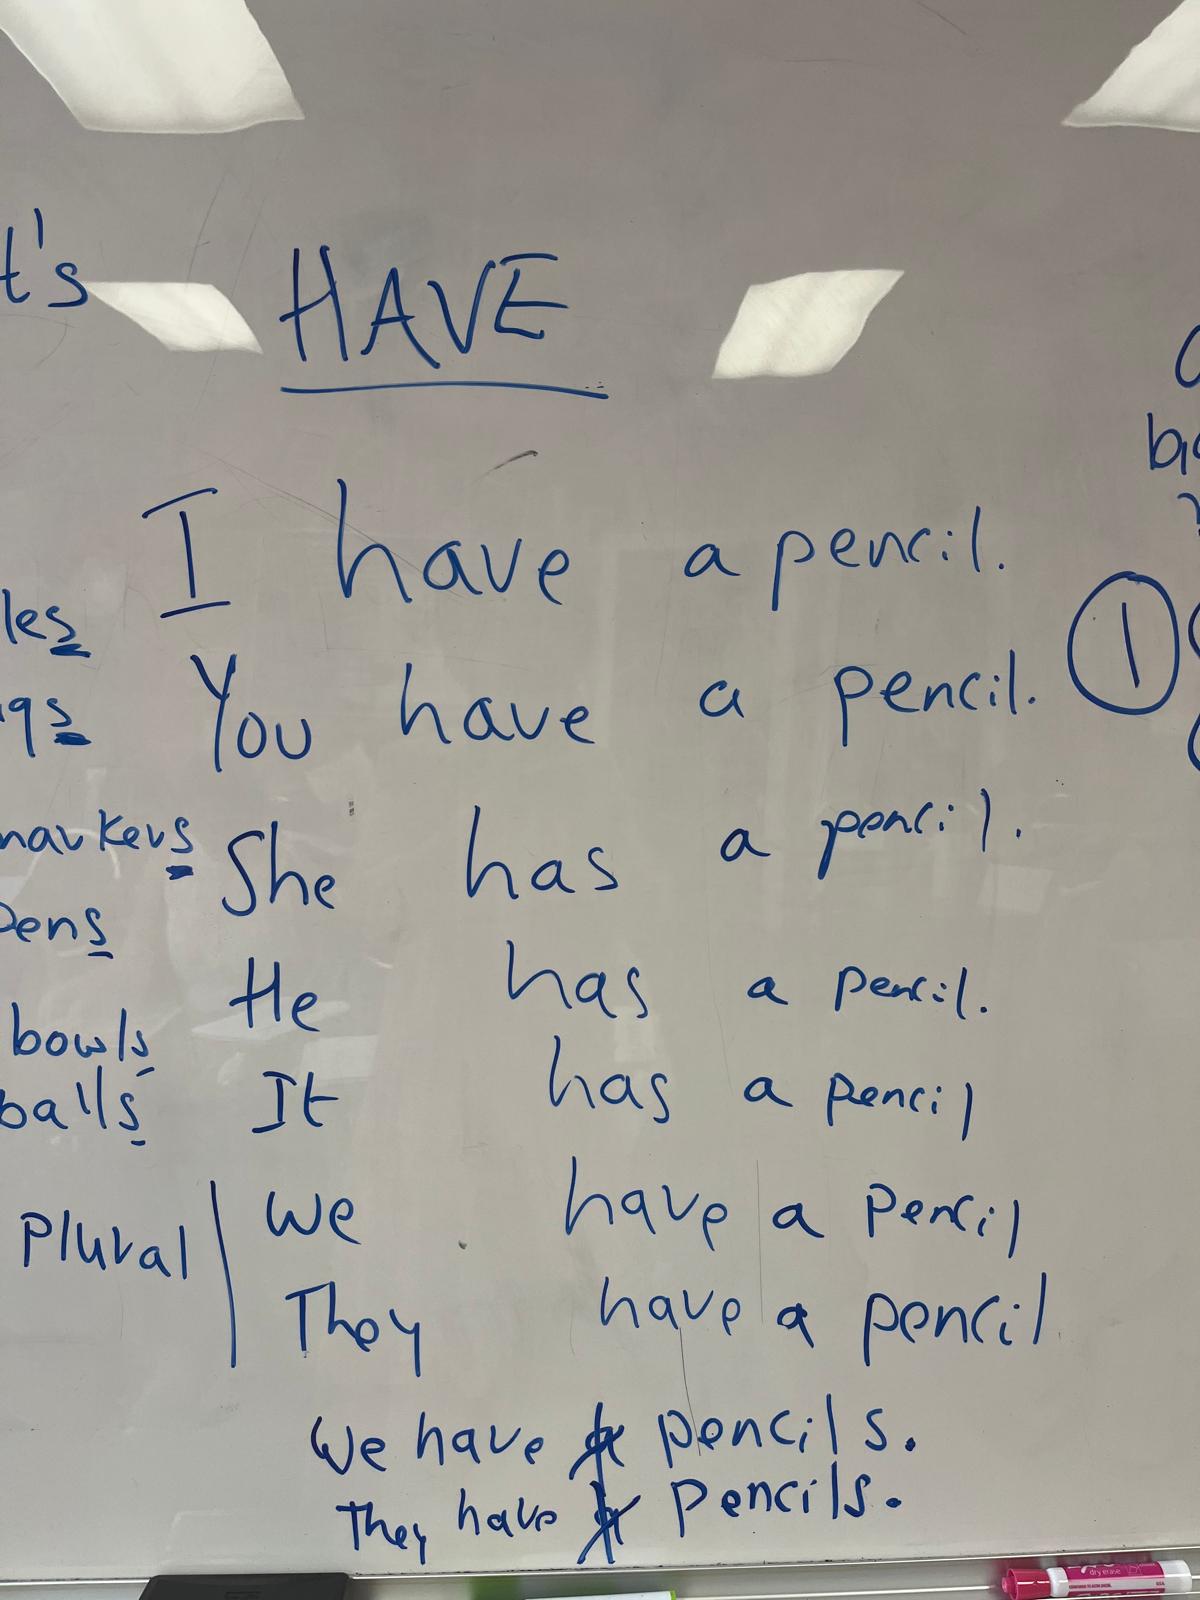 t's
HAVE
I have a pencil.
You have a pencil.
She has a pencil.
He has a pencil.
It has a pencil
we have a pencil
They have a pencil
we have a pencils.
They have pencils.
les
gs
markers
pens
bowls
balls
Plural
1
dry erase